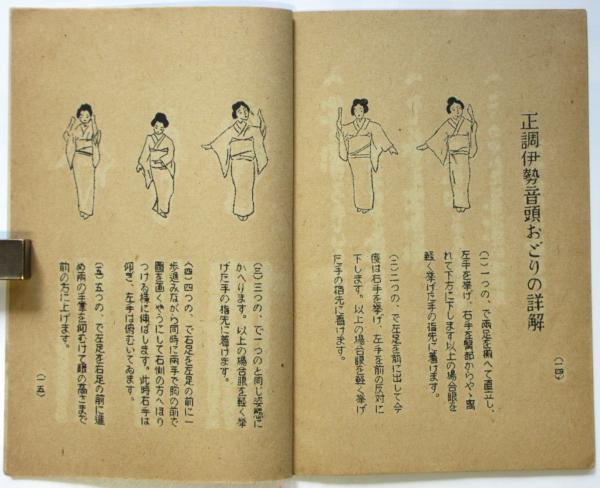 正調伊勢音頭おどりの詳解
(一) 一つの、で兩足を揃へて直立し、
左手を挙げ、右手を臀部からやゝ离
れて下方に下します以上の場合眼を
軽く挙げた手の指先に着けます。
(二) 二つの、で左足を前に出して今
度は右手を挙げ、左手を前の反対に
下します。以上の場合眼を軽く挙げ
た手の指先に着けます。
(一四)
(三) 三つの、で一つのと同じ姿態に
かへります。以上の場合眼を軽く挙
げた手の指先に着けます。
(四) 四つの、で右足を左足の前に一
歩進みながら同時に兩手で胸の前で
圓を画くやうにして右側の方へほり
つける様に伸ばします。此時右手は
仰ぎ、左手は俯むいてゐます。
(五) 五つの、で左足を右足の前に進
め兩の手掌を仰むけて眼の高さまで
前の方に上げます。
(一五)